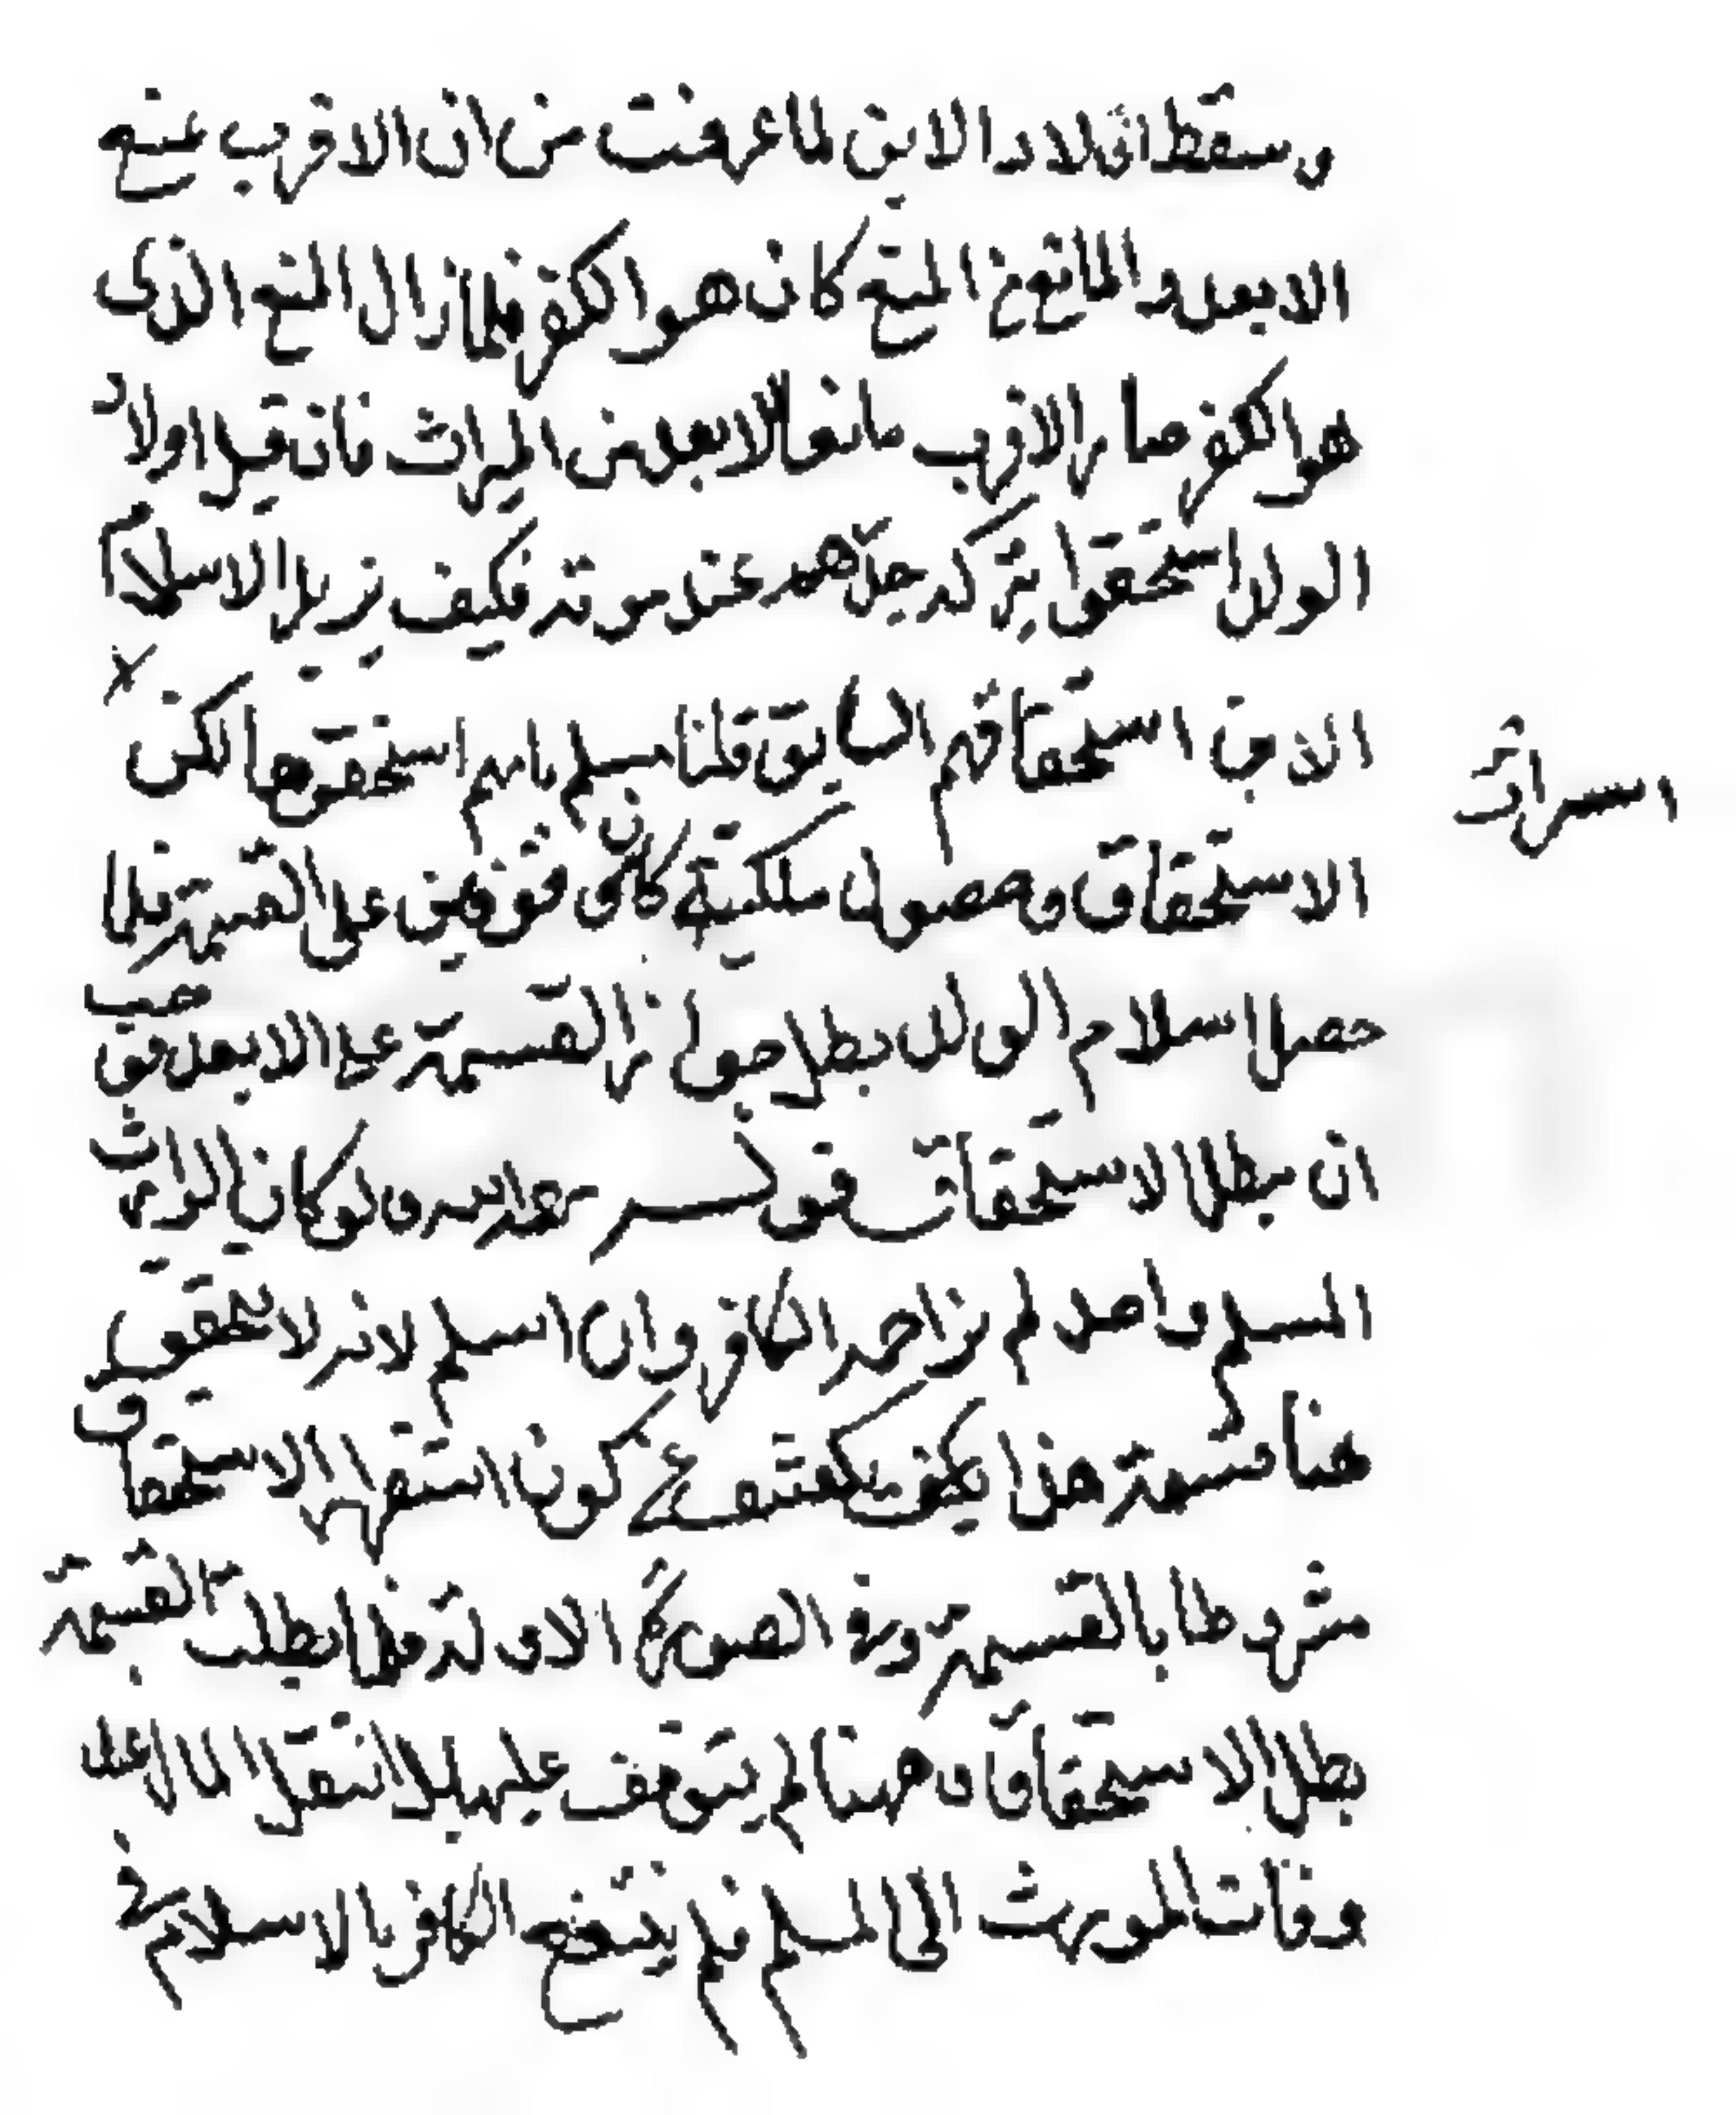 وسقط اولاد الابن لما عرفت من ان الاقرب يمنع
الابعد والمانع من المنع كان هو الكفر فلما زال المنع الذى
هو الكفر صار الاقرب مانعا لابعد من الميراث فان قيل اولاد
الولد استحقوا بتركة جدهم عند موته فكيف يزيل الاسلام
الابن استحقاقهم السابق قلنا مسلم بانهم استحقوها لكن
الميراث
الاستحقاق وحصول ملكية كان موقوفين على القسمة فلما
حصل اسلام الولد بطل جواز القسمة على الابعد فوجب
ان يبطل الاستحقاق قوله لو كان الوارث
المسلم واحدا لم يزاحمه الكافر وان اسلم لانه لا يتحقق
هنا قسمة هذا يكفى كون انتقال الاستحقاق
مشروطا بالقسمة وفى الصورة الاولى لما بطلت القسمة
بطل الاستحقاق وهنا لم يتوقف عليها بل انتقل المال عند
وفات المورث الى المسلم فلم ينتفع الكافر بالاسلام